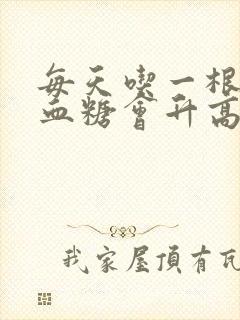 每天喫一根
血糖會升高
我家屋頂有瓦